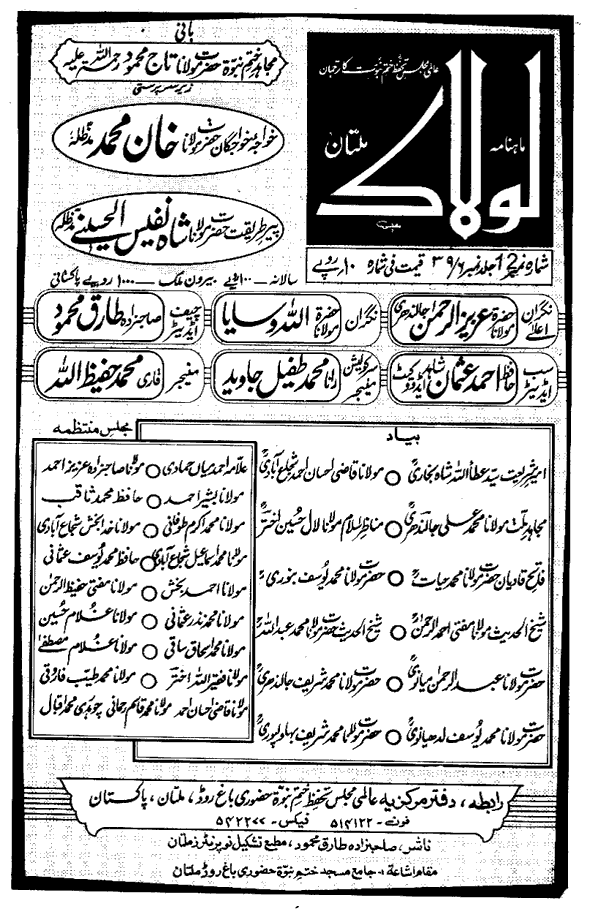 بانی
مجاہد ختم نبوۃ حضرت مولانا تاج محمود رحمۃ اللہ علیہ
زیر سرپرستی
خواجہ خواجگان حضرت مولانا خان محمد مدظلہ
پیر طریقت حضرت مولانا شاہ نفیس الحسینی مدظلہ
عالمی مجلس تحفظ ختم نبوت کا ترجمان
ماہنامہ
لولاک
ملتان
شمارہ نمبر 12 جلد نمبر ۳۹/۶ قیمت فی شمارہ ۱۰ روپے
سالانہ ۱۰۰ روپے بیرون ملک ۱۰۰۰ روپے پاکستانی
نگران اعلیٰ حضرت مولانا عزیز الرحمن جالندھری
نگران حضرت مولانا اللہ وسایا
چیف ایڈیٹر صاحبزادہ طارق محمود
سب ایڈیٹر حافظ احمد عثمان شاہد ایڈووکیٹ
سرکولیشن مینیجر رانا محمد طفیل جاوید
مینیجر قاری محمد حفیظ اللہ
بیاد
امیر شریعت سید عطاء اللہ شاہ بخاریؒ ○ مولانا قاضی احسان احمد شجاع آبادیؒ
مجاہد ملت مولانا محمد علی جالندھریؒ ○ مناظر اسلام مولانا لال حسین اخترؒ
فاتح قادیان حضرت مولانا محمد حیاتؒ ○ حضرت مولانا محمد یوسف بنوریؒ
شیخ الحدیث مولانا مفتی احمد الرحمنؒ ○ شیخ الحدیث حضرت مولانا محمد عبداللہؒ
حضرت مولانا عبدالرحمن میانویؒ ○ حضرت مولانا محمد شریف جالندھریؒ
حضرت مولانا محمد یوسف لدھیانویؒ ○ حضرت مولانا محمد شریف بہاولپوریؒ
مجلس منتظمہ
علامہ احمد میاں حمادی ○ مولانا صاحبزادہ عزیز احمد
مولانا بشیر احمد ○ حافظ محمد ثاقب
مولانا محمد اکرم طوفانی ○ مولانا خدا بخش شجاع آبادی
مولانا محمد اسماعیل شجاع آبادی ○ حافظ محمد یوسف عثمانی
مولانا احمد بخش ○ مولانا مفتی حفیظ الرحمن
مولانا محمد نذر عثمانی ○ مولانا غلام حسین
مولانا محمد اسحاق ساقی ○ مولانا غلام مصطفےٰ
مولانا فقیر اللہ اختر ○ مولانا محمد طیب فاروقی
مولانا قاضی احسان احمد مولانا محمد قاسم رحمانی چوہدری محمد اقبال
رابطہ، دفتر مرکزیہ عالمی مجلس تحفظ ختم نبوۃ حضوری باغ روڈ، ملتان، پاکستان
فون ۵۱۴۱۲۲ فیکس ۵۴۲۲۷۷
ناشر، صاحبزادہ طارق محمود، مطبع تشکیل نو پرنٹرز ملتان
مقام اشاعت: جامع مسجد ختم نبوۃ حضوری باغ روڈ ملتان